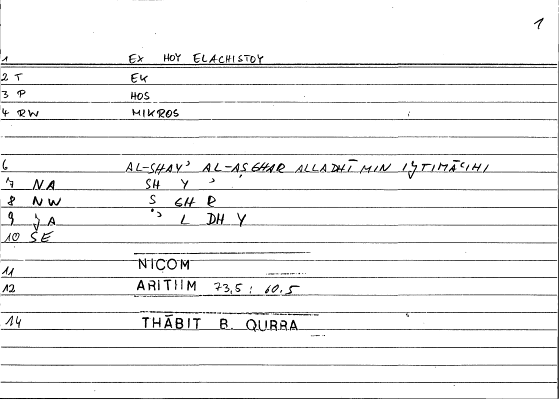 1
1 EX HOY ELACHISTOY
2 T EK
3 P HOS
4 RW MIKROS
6 AL-SHAY' AL-ASGHAR ALLADHĪ MIN IǧTIMĀCIHI
7 NA SH Y '
8 NW S GH R
9 ǧA ' L DH Y
10 SE
NICOM
11
12 ARITIIM 73,5 : 60,5
14 THĀBIT B. QURRA